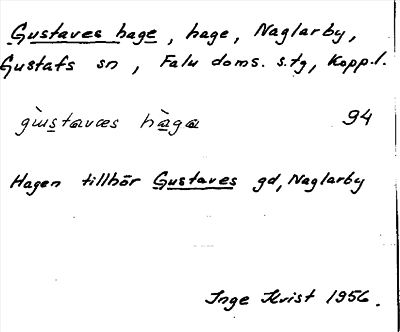 Gustaves hage, hage, Naglarby,
Gustafs sn, Falu doms. s.tg, Kopp.l.
gùstavæs hàga 94
Hagen tillhör Gustaves gd, Naglarby
Inge Kvist 1956.